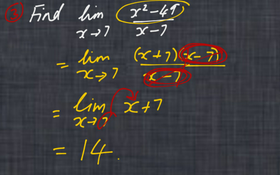 5 Find lim x→7 x²-49 / x-7
= lim x→7 (x+7)(x-7) / x-7
= lim x→7 x+7
= 14.